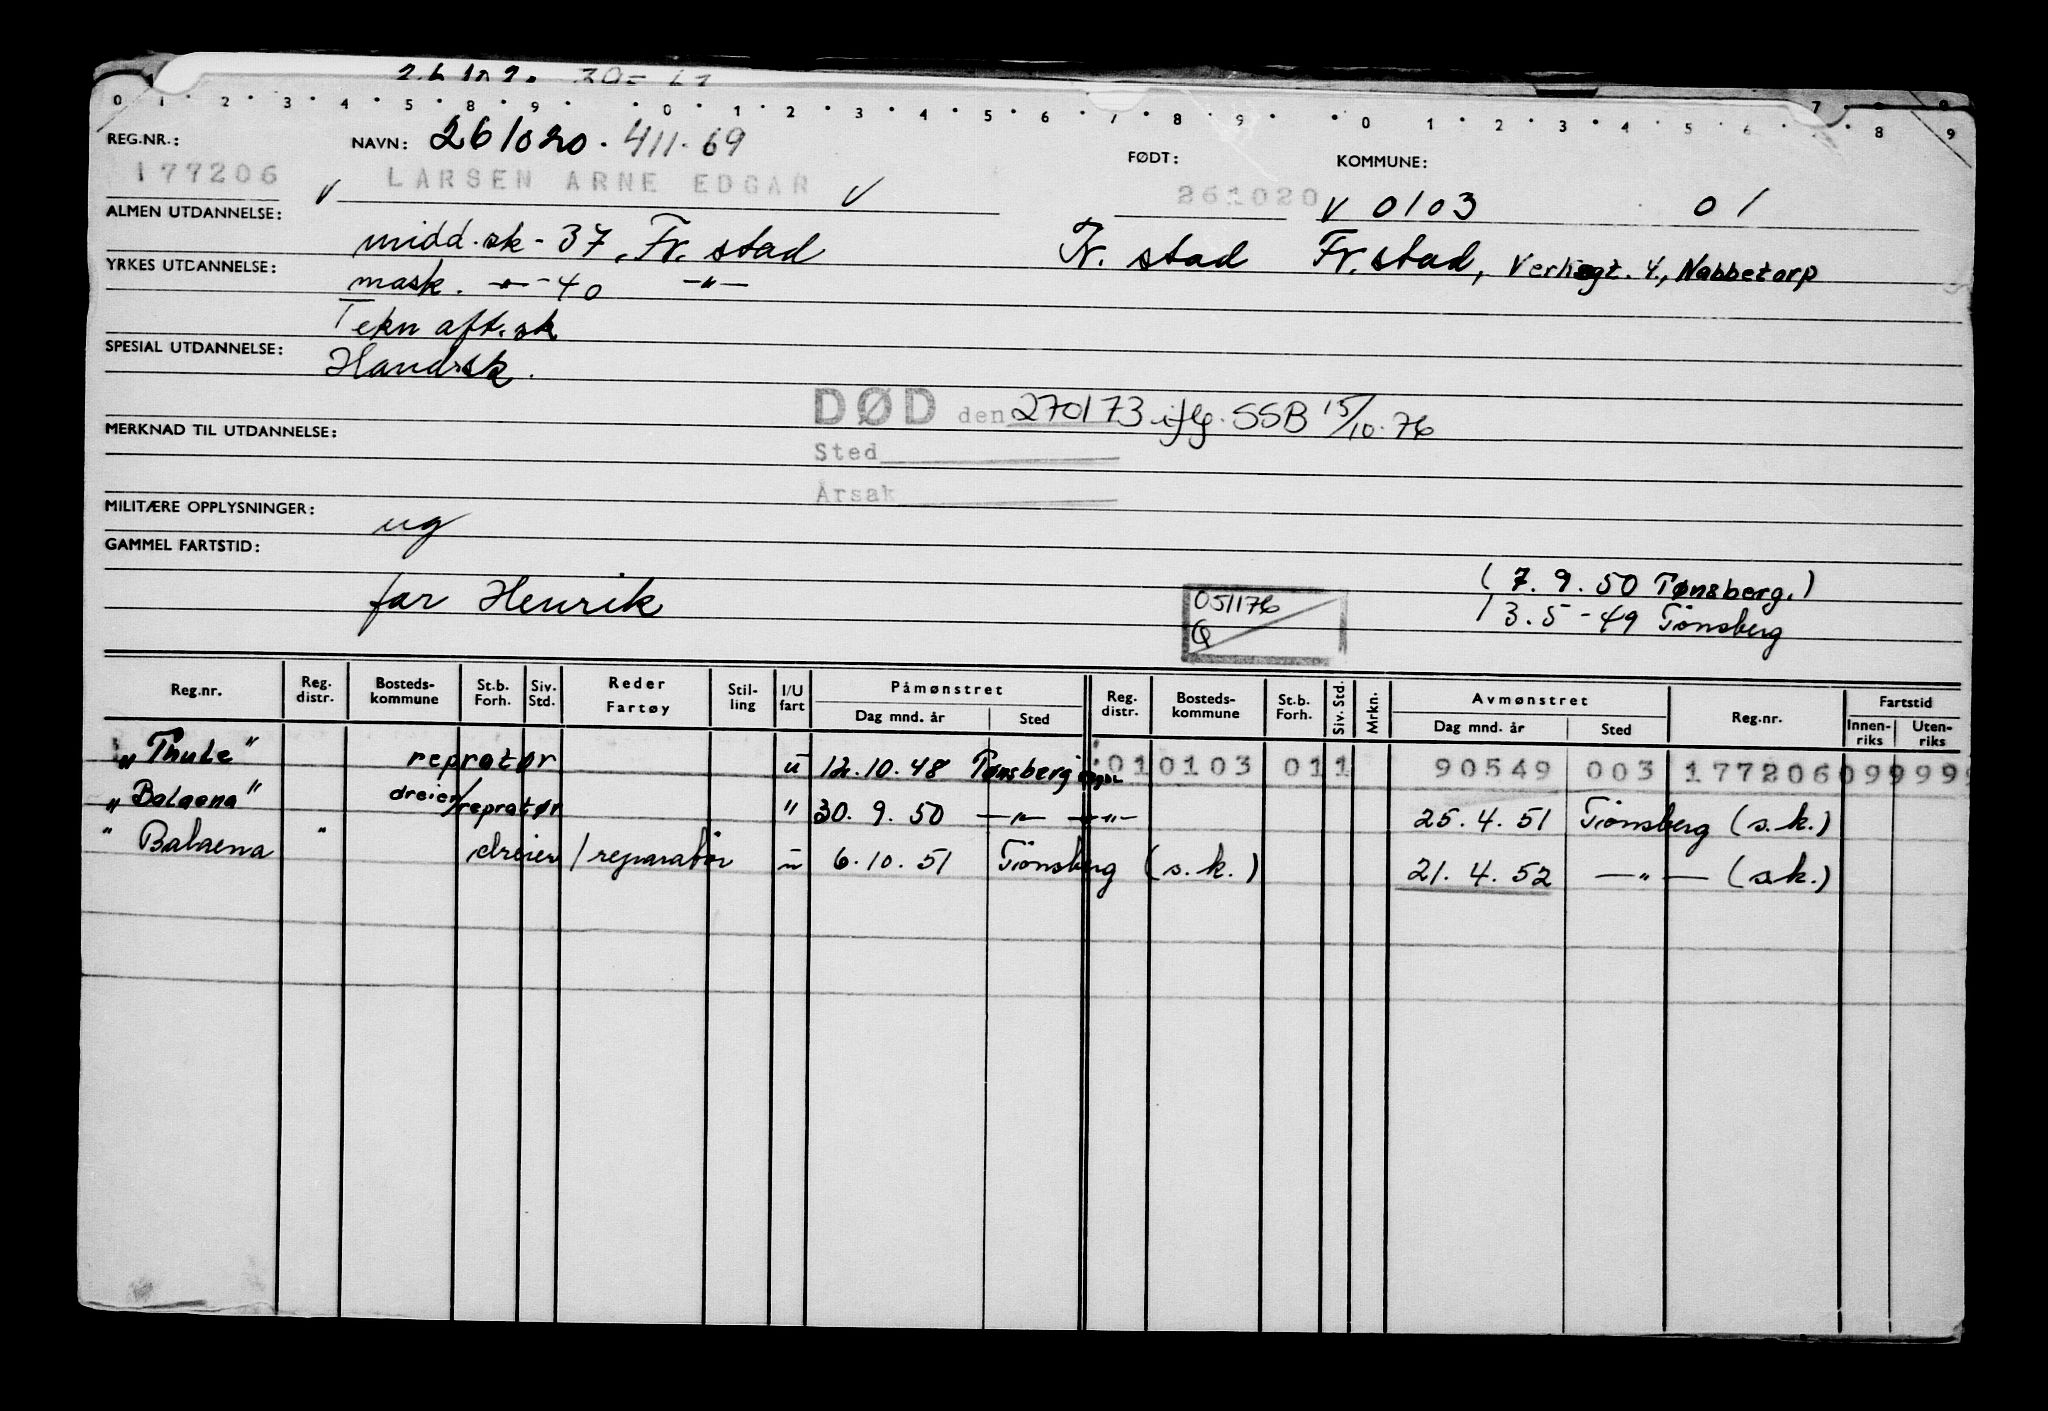 0 1 2 3 4 5 8 9 0 1 2 3 4 5 6 7 8 9 0 1 2 3 4 5 6 7 8 9
REG.NR.: NAVN: 261020. 411.69 FØDT: KOMMUNE:
177206 V LARSEN ARNE EDGAR V 261020 V 0103 01
ALMEN UTDANNELSE: midd.sk - 37, Fr. stad Fr. stad Fr. stad, Verksgt. 4, Nabbetorp
YRKES UTDANNELSE: mask. -"- 40 -"-
Tekn aft. sk
SPESIAL UTDANNELSE: Hand.sk.
DØD den 270173 iflg. SSB 15/10.76
MERKNAD TIL UTDANNELSE:
Sted
Årsak
MILITÆRE OPPLYSNINGER: ug
GAMMEL FARTSTID:
(7. 9. 50 Tønsberg.)
far Henrik 051176 13.5-49 Tönsberg
Q
Reg.nr. Reg. distr. Bosteds-kommune St.b. Forh. Siv. Std. Reder Fartøy Stil-ling I/U fart Påmønstret Dag mnd. år Sted Reg. distr. Bosteds-kommune St.b. Forh. Siv. Std. Mrkn. Avmønstret Dag mnd. år Sted Reg.nr. Fartstid Innen-riks Uten-riks
"Thule" repratør u 12.10.48 Tønsberg 010103 011 90549 003 177206099999
"Balaena" dreier/repratør " 30. 9. 50 -"- -"- 25. 4. 51 Tönsberg (s.k.)
"Balaena" dreier/reparatør u 6.10.51 Tönsberg (s.k.) 21. 4. 52 -"- (sk.)